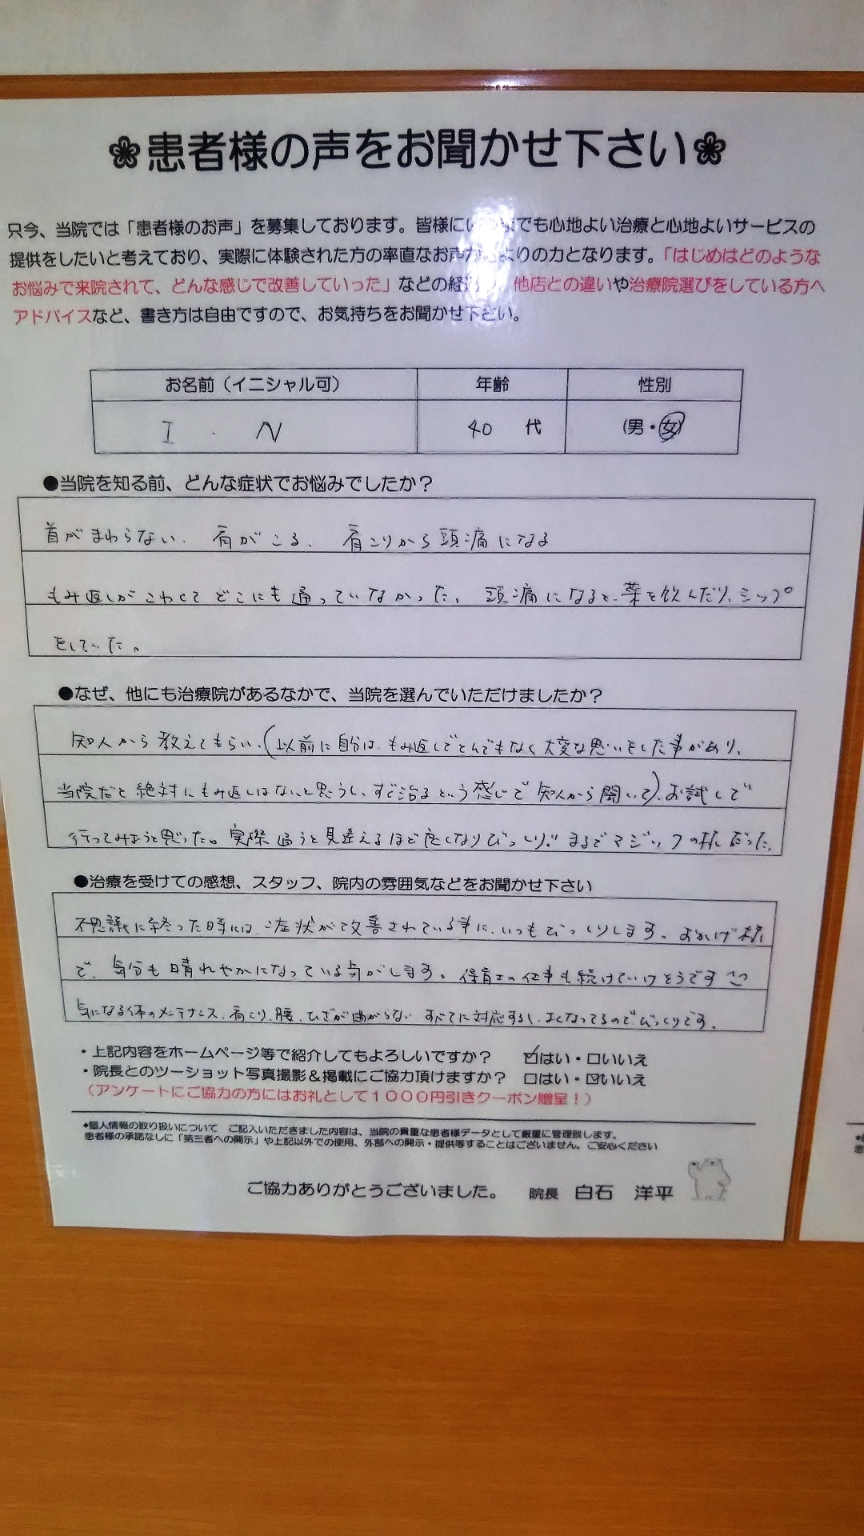 ❀患者様の声をお聞かせ下さい❀
只今、当院では「患者様のお声」を募集しております。皆様に でも心地よい治療と心地よいサービスの
提供をしたいと考えており、実際に体験された方の率直なお声が よりの力となります。「はじめはどのような
お悩みで来院されて、どんな感じで改善していった」などの経 他店との違いや治療院選びをしている方へ
アドバイスなど、書き方は自由ですので、お気持ちをお聞かせ下さい。
お名前（イニシャル可） 年齢 性別
I . N 40 代 (男・女)
●当院を知る前、どんな症状でお悩みでしたか？
首がまわらない、肩がこる、肩こりから頭痛になる
もみ返しがこわくてどこにも通っていなかった。頭痛になると、薬を飲んだり、シップ
をしていた。
●なぜ、他にも治療院があるなかで、当院を選んでいただけましたか？
知人から教えてもらい、(以前に自分は、もみ返しでとんでもなく大変な思いをした事があり、
当院だと絶対にもみ返しはないと思うし、すぐ治るという感じで知人から聞いて)、お試しで
行ってみようと思った。実際通うと見違えるほど良くなりびっくり!!まるでマジックの様だった。
●治療を受けての感想、スタッフ、院内の雰囲気などをお聞かせ下さい
不思議に終った時には、症状が改善されている事に、いつもびっくりします。おかげ様
で、気分も晴れやかになっている気がします。保育士の仕事も続けていけそうです
気になる体のメンテナンス、肩こり、腰、ひざが曲がらない すべてに対応するし、よくなってるのでびっくりです。
・上記内容をホームページ等で紹介してもよろしいですか？ ☑はい・□いいえ
・院長とのツーショット写真撮影＆掲載にご協力頂けますか？ □はい・☑いいえ
（アンケートにご協力の方にはお礼として１０００円引きクーポン贈呈！）
●個人情報の取り扱いについて ご記入いただきました内容は、当院の貴重な患者様データとして厳重に管理致します。
患者様の承諾なしに「第三者への開示」や上記以外での使用、外部への開示・提供等することはございません。ご安心ください
ご協力ありがとうございました。 院長 白石 洋平